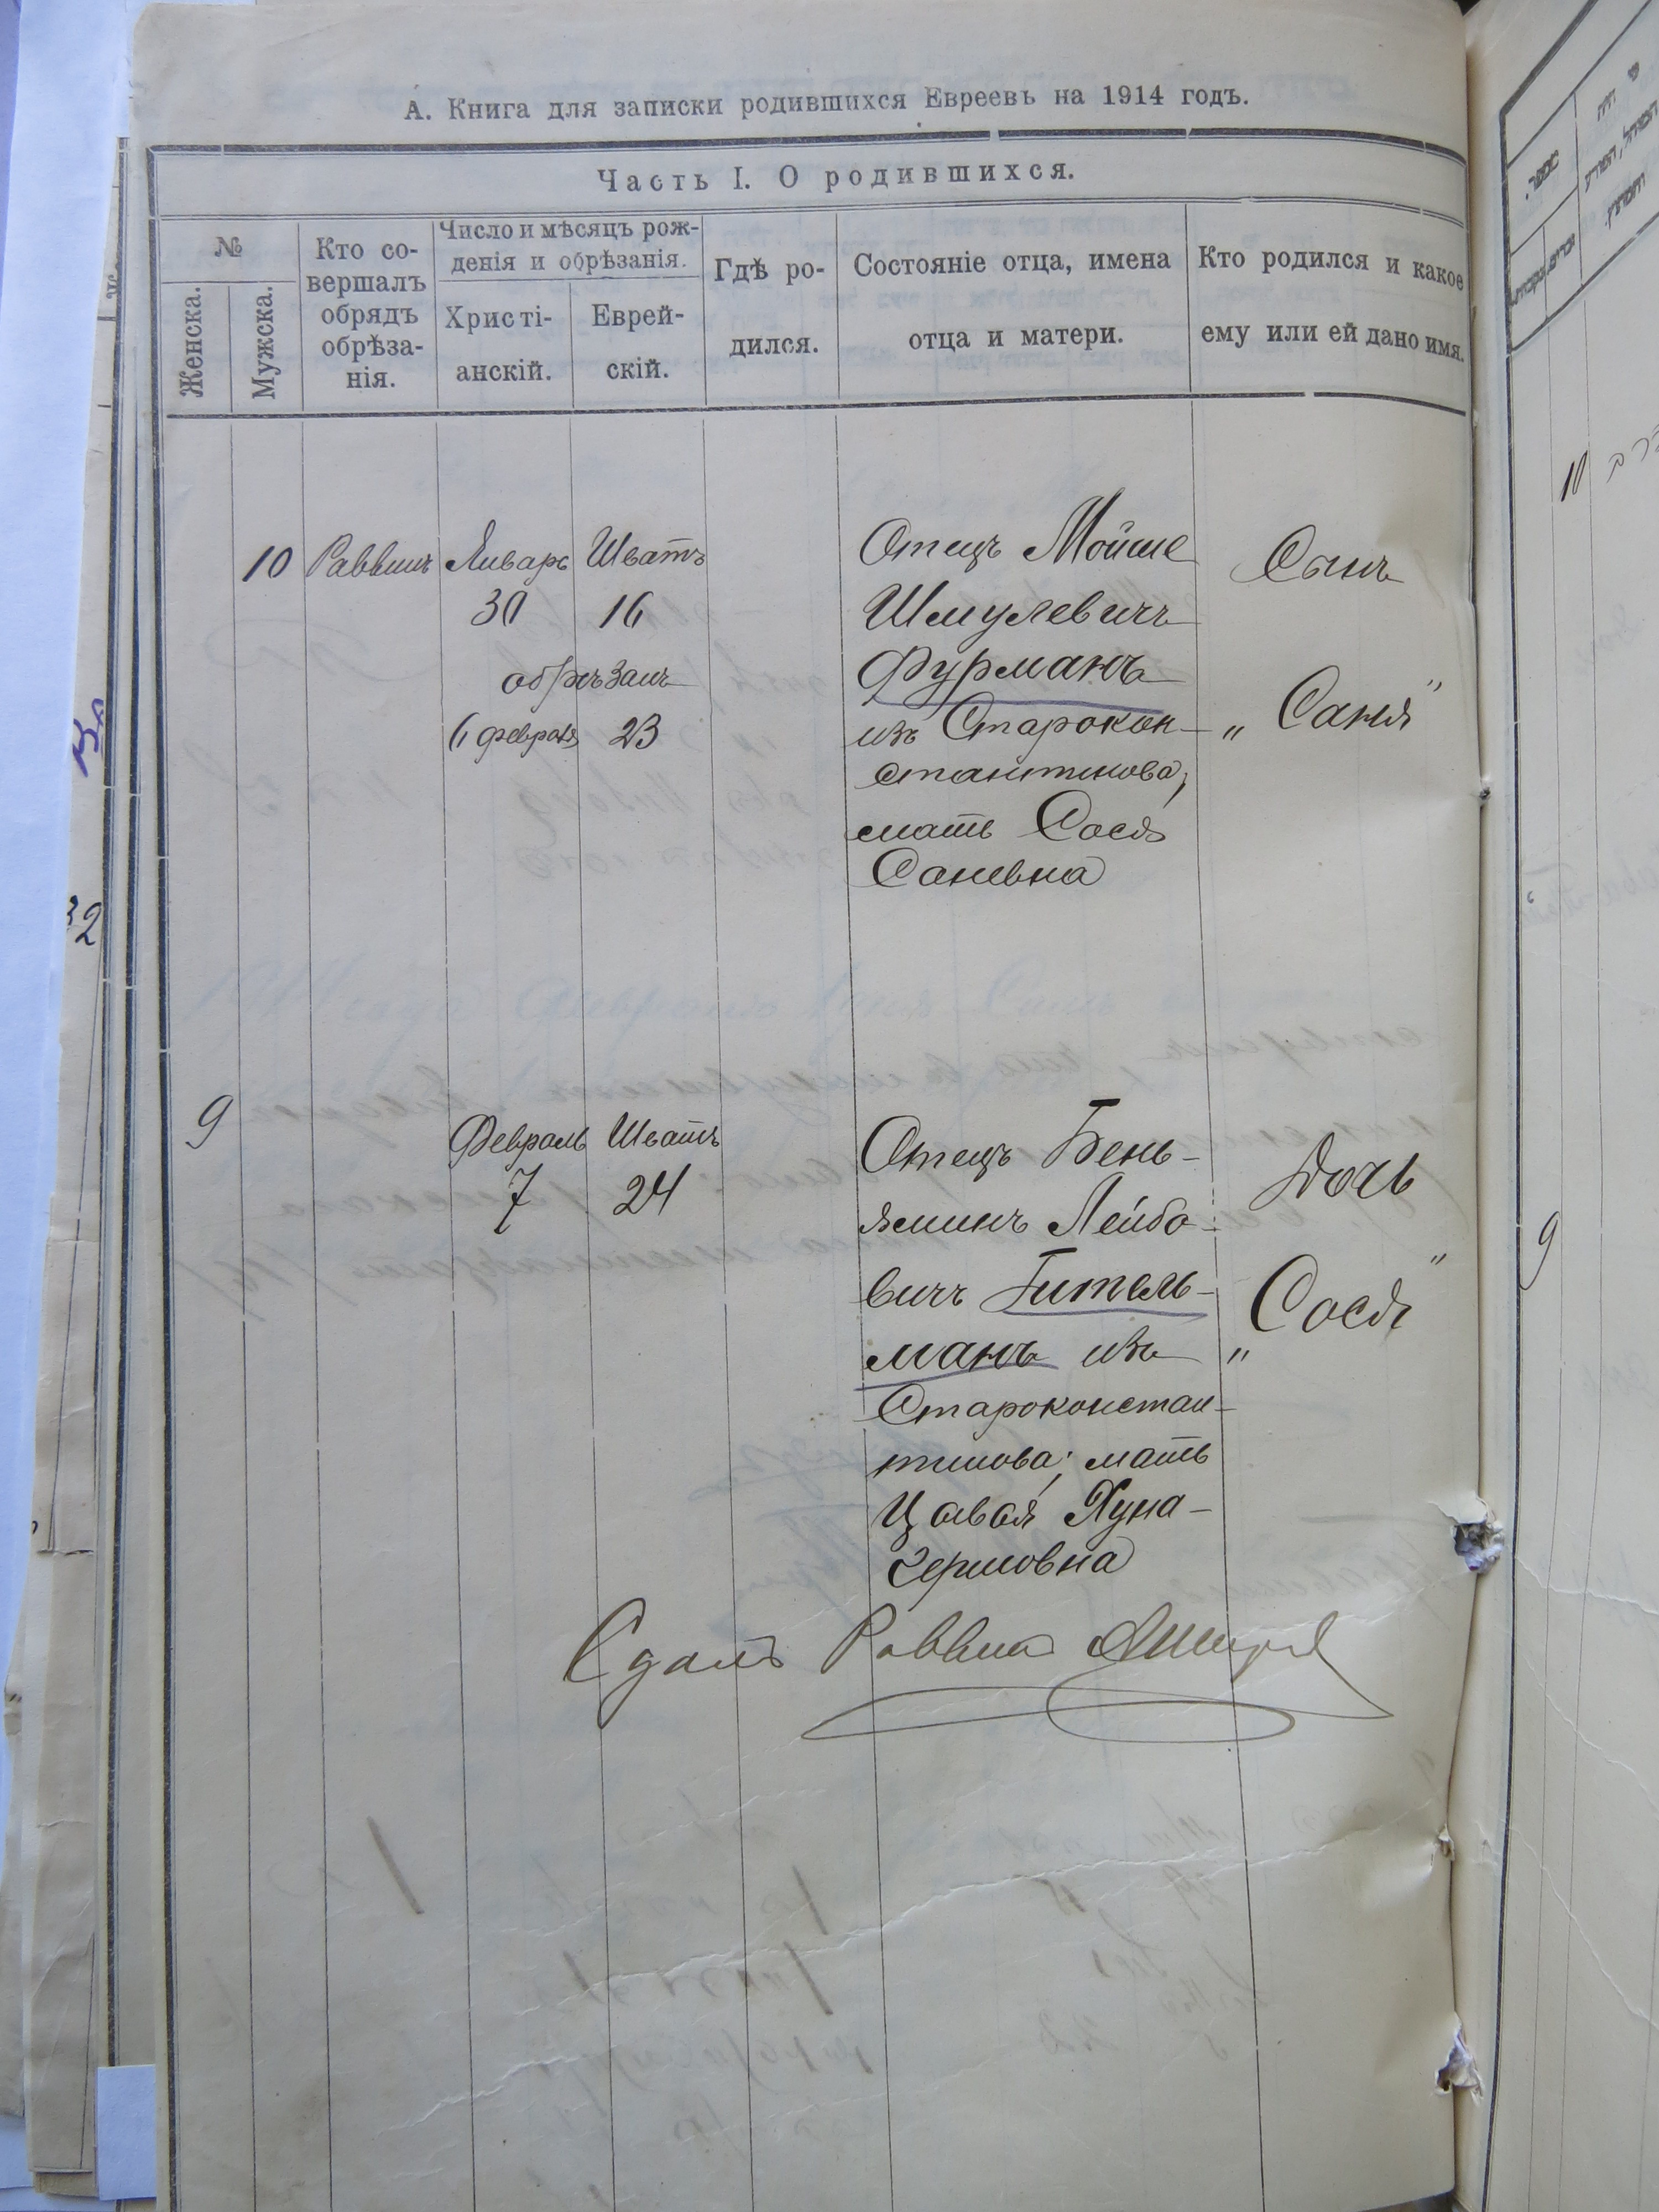 А. Книга для записки родившихся Евреевъ на 1914 годъ.
Часть I. О родившихся.
№
Женска.
Мужска.
Кто со-
вершалъ
обрядъ
обрѣза-
нія.
Число и мѣсяцъ рож-
денія и обрѣзанія.
Христі-
анскій.
Еврей-
скій.
Гдѣ ро-
дился.
Состояніе отца, имена
отца и матери.
Кто родился и какое
ему или ей дано имя.
10 Раввинъ Январь Шватъ
30 16
обрѣзанъ
6 февраля 23
Отецъ Мойше
Шмулевичъ
Фурманъ
изъ Старокон-
стантинова,
мать Сося
Саневна
Сынъ
„Саня"
9
Февраль Шватъ
7 24
Отецъ Бень-
яминъ Лейбо-
вичъ Гитель-
манъ изъ
Староконстан-
тинова; мать
Хуна-
Гершовна
Дочь
„Сося"
Сдалъ Раввин
10
9
32